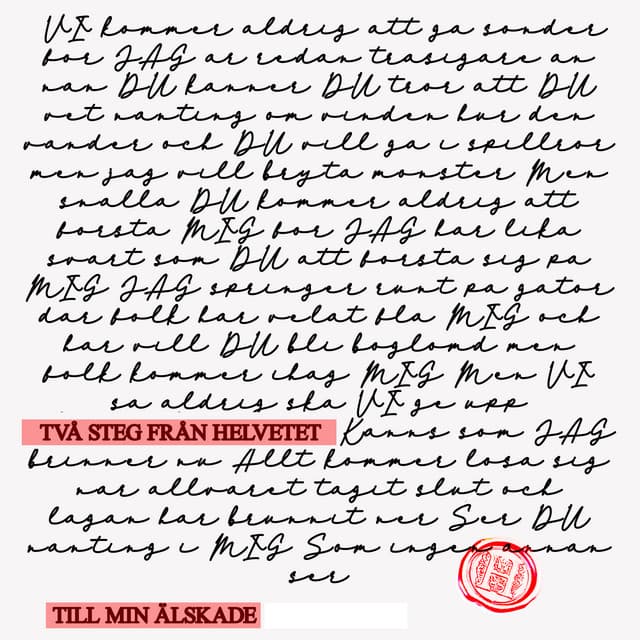 VI kommer aldrig att ga sonder
for JAG ar redan trasigare an
nan DU kanner DU tror att DU
vet nanting om vinden hur den
vander och DU vill ga i spillror
men jag vill bryta monster Men
snalla DU kommer aldrig att
forsta MIG for JAG har lika
svart som DU att forsta sig pa
MIG JAG springer runt pa gator
dar folk har velat fla MIG och
har vill DU bli foglomd men
folk kommer ihag MIG Men VI
sa aldrig ska VI ge upp
TVÅ STEG FRÅN HELVETET Kanns som JAG
brinner nu Allt kommer losa sig
nar allvaret tagit slut och
lagan har brunnit ner Ser DU
nanting i MIG Som ingen annan
ser
TILL MIN ÄLSKADE